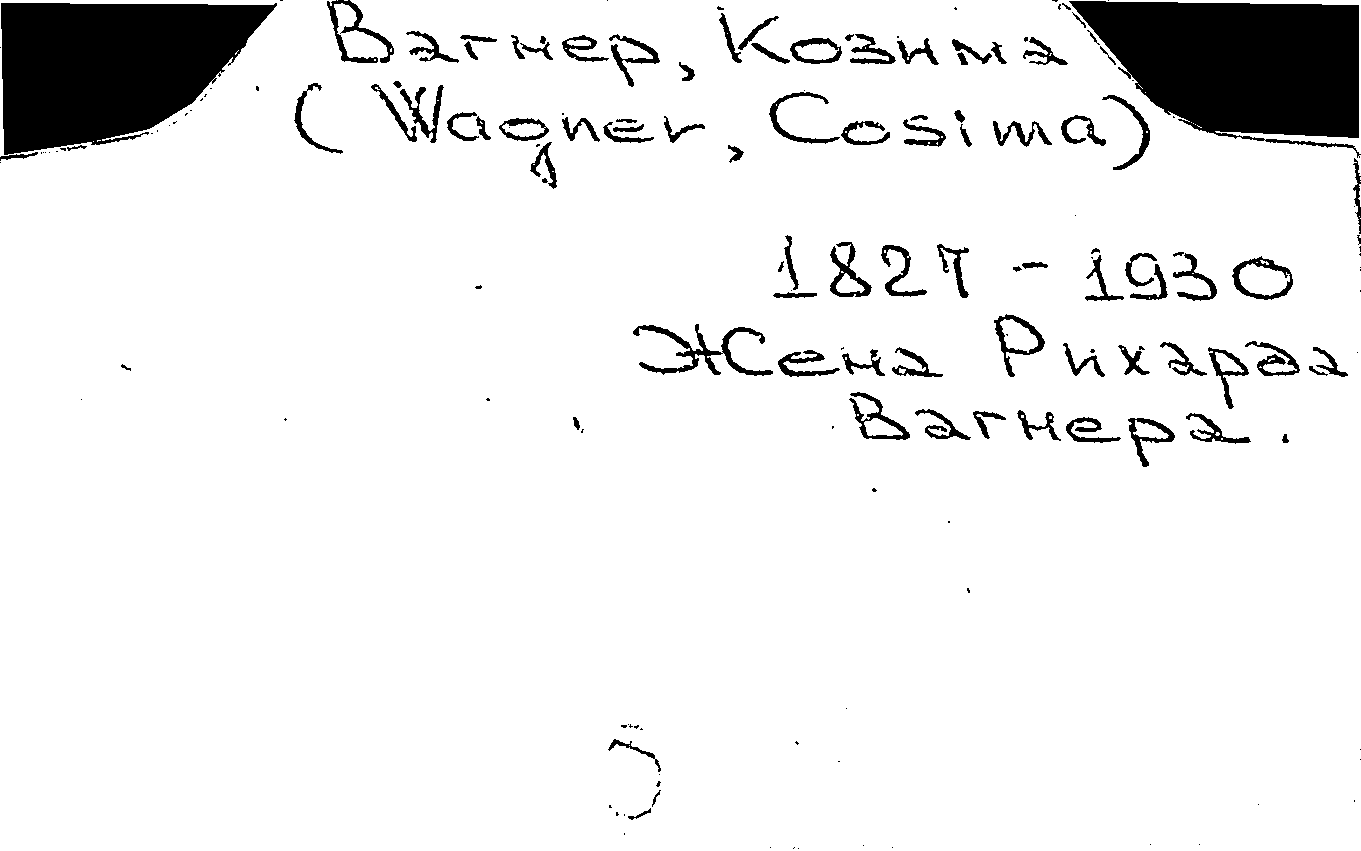 Вагнер, Козима
(Wagner, Cosima)
1827 - 1930
Жена Рихарда
Вагнера.